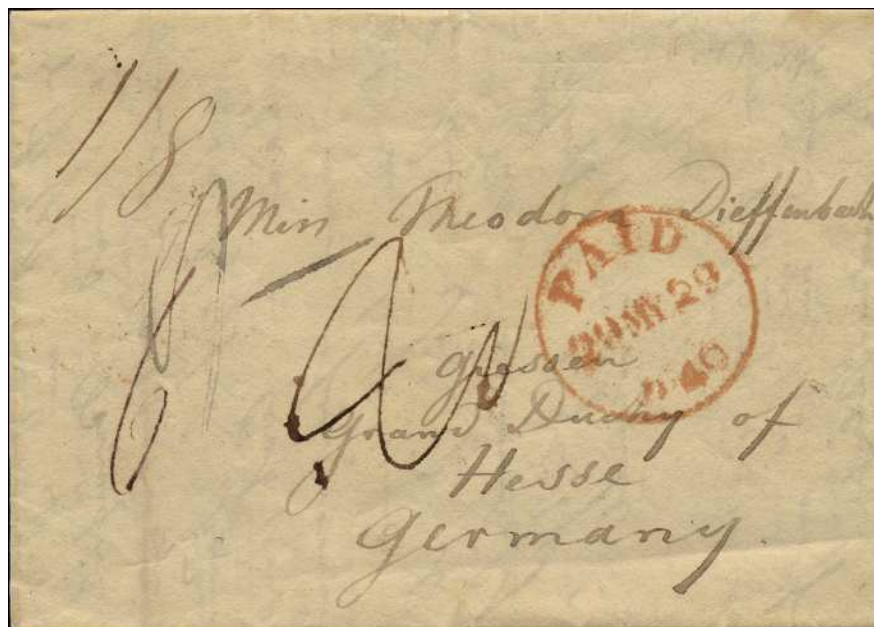 1/8
Miss Theodora Dieffenbach
PAID
29 MY 29
1840
Giessen
Grand Duchy of
Hesse
Germany.